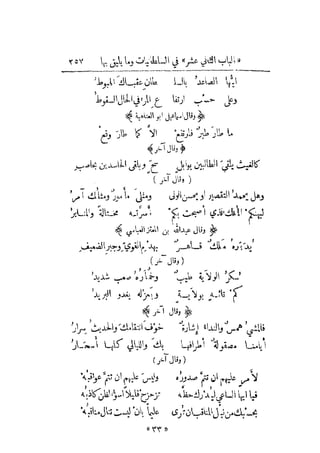 «الباب الثاني عشر» في السلطانيات وما يليق بها ٢٥٧
ايها الصاعد بالـ طان عقبـك الهبوط
وعلى حسب ارتفا ع المرء في الحال السقوط
﴿ وقال اسماعيل ابو العتاهية ﴾
ما طار طير فارتفع الا كما طار وقع
﴿ وقال آخر ﴾
كالغيث يلقى الطالبين بوابل سح ويلقى الحاسدين بحاصب
( وقال آخر )
وهل يحمد التقصير او يحسن الونى ومثلي مأمور ومثلك آمر
ليهنكم الملك الذي اصبحت بكم أسرته مختالة والمنابر
﴿ وقال عبدالله بن المعتز العباسي ﴾
يهدم الغوي وجبر الضعيف
( وقال آخر )
سكر الولاية طيب وخماره صعب شديد
كم تائه بولاية وبعزله يغدو البريد
﴿ وقال آخر ﴾
فالمشي همس والنداء اشارة خوف انتقامك والحديث سرار
أيامنا مصقولة أطرافها بك والليالي كلها أسحار
( وقال آخر )
لأمر عليهم ان تتم صدوره وليس عليهم ان تتم عواقبه
فيا ايها الساعي ليدرك حظه تزحزح قليلاً اسوأ الظن كاذبه
بحسبك من نيل المناقب ان ترى عليماً بان ليست تنال مناقبه
«٣٣»